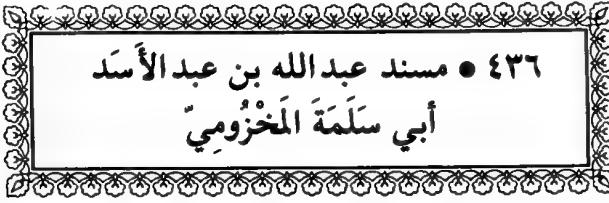 ٤٣٦ ● مسند عبدالله بن عبدالأَسَد
أبي سَلَمَةَ المَخْزُومِيّ